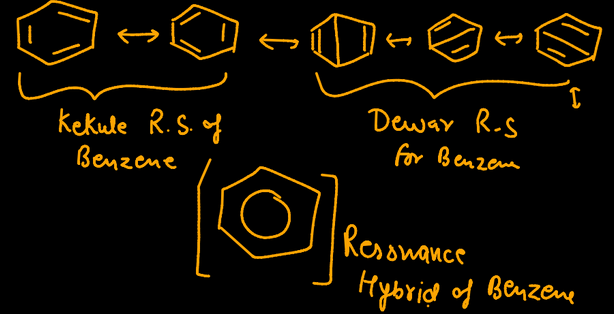 Kekule R.S. of
Benzene
Dewar R.S
for Benzene
Ressonance
Hybrid of Benzene